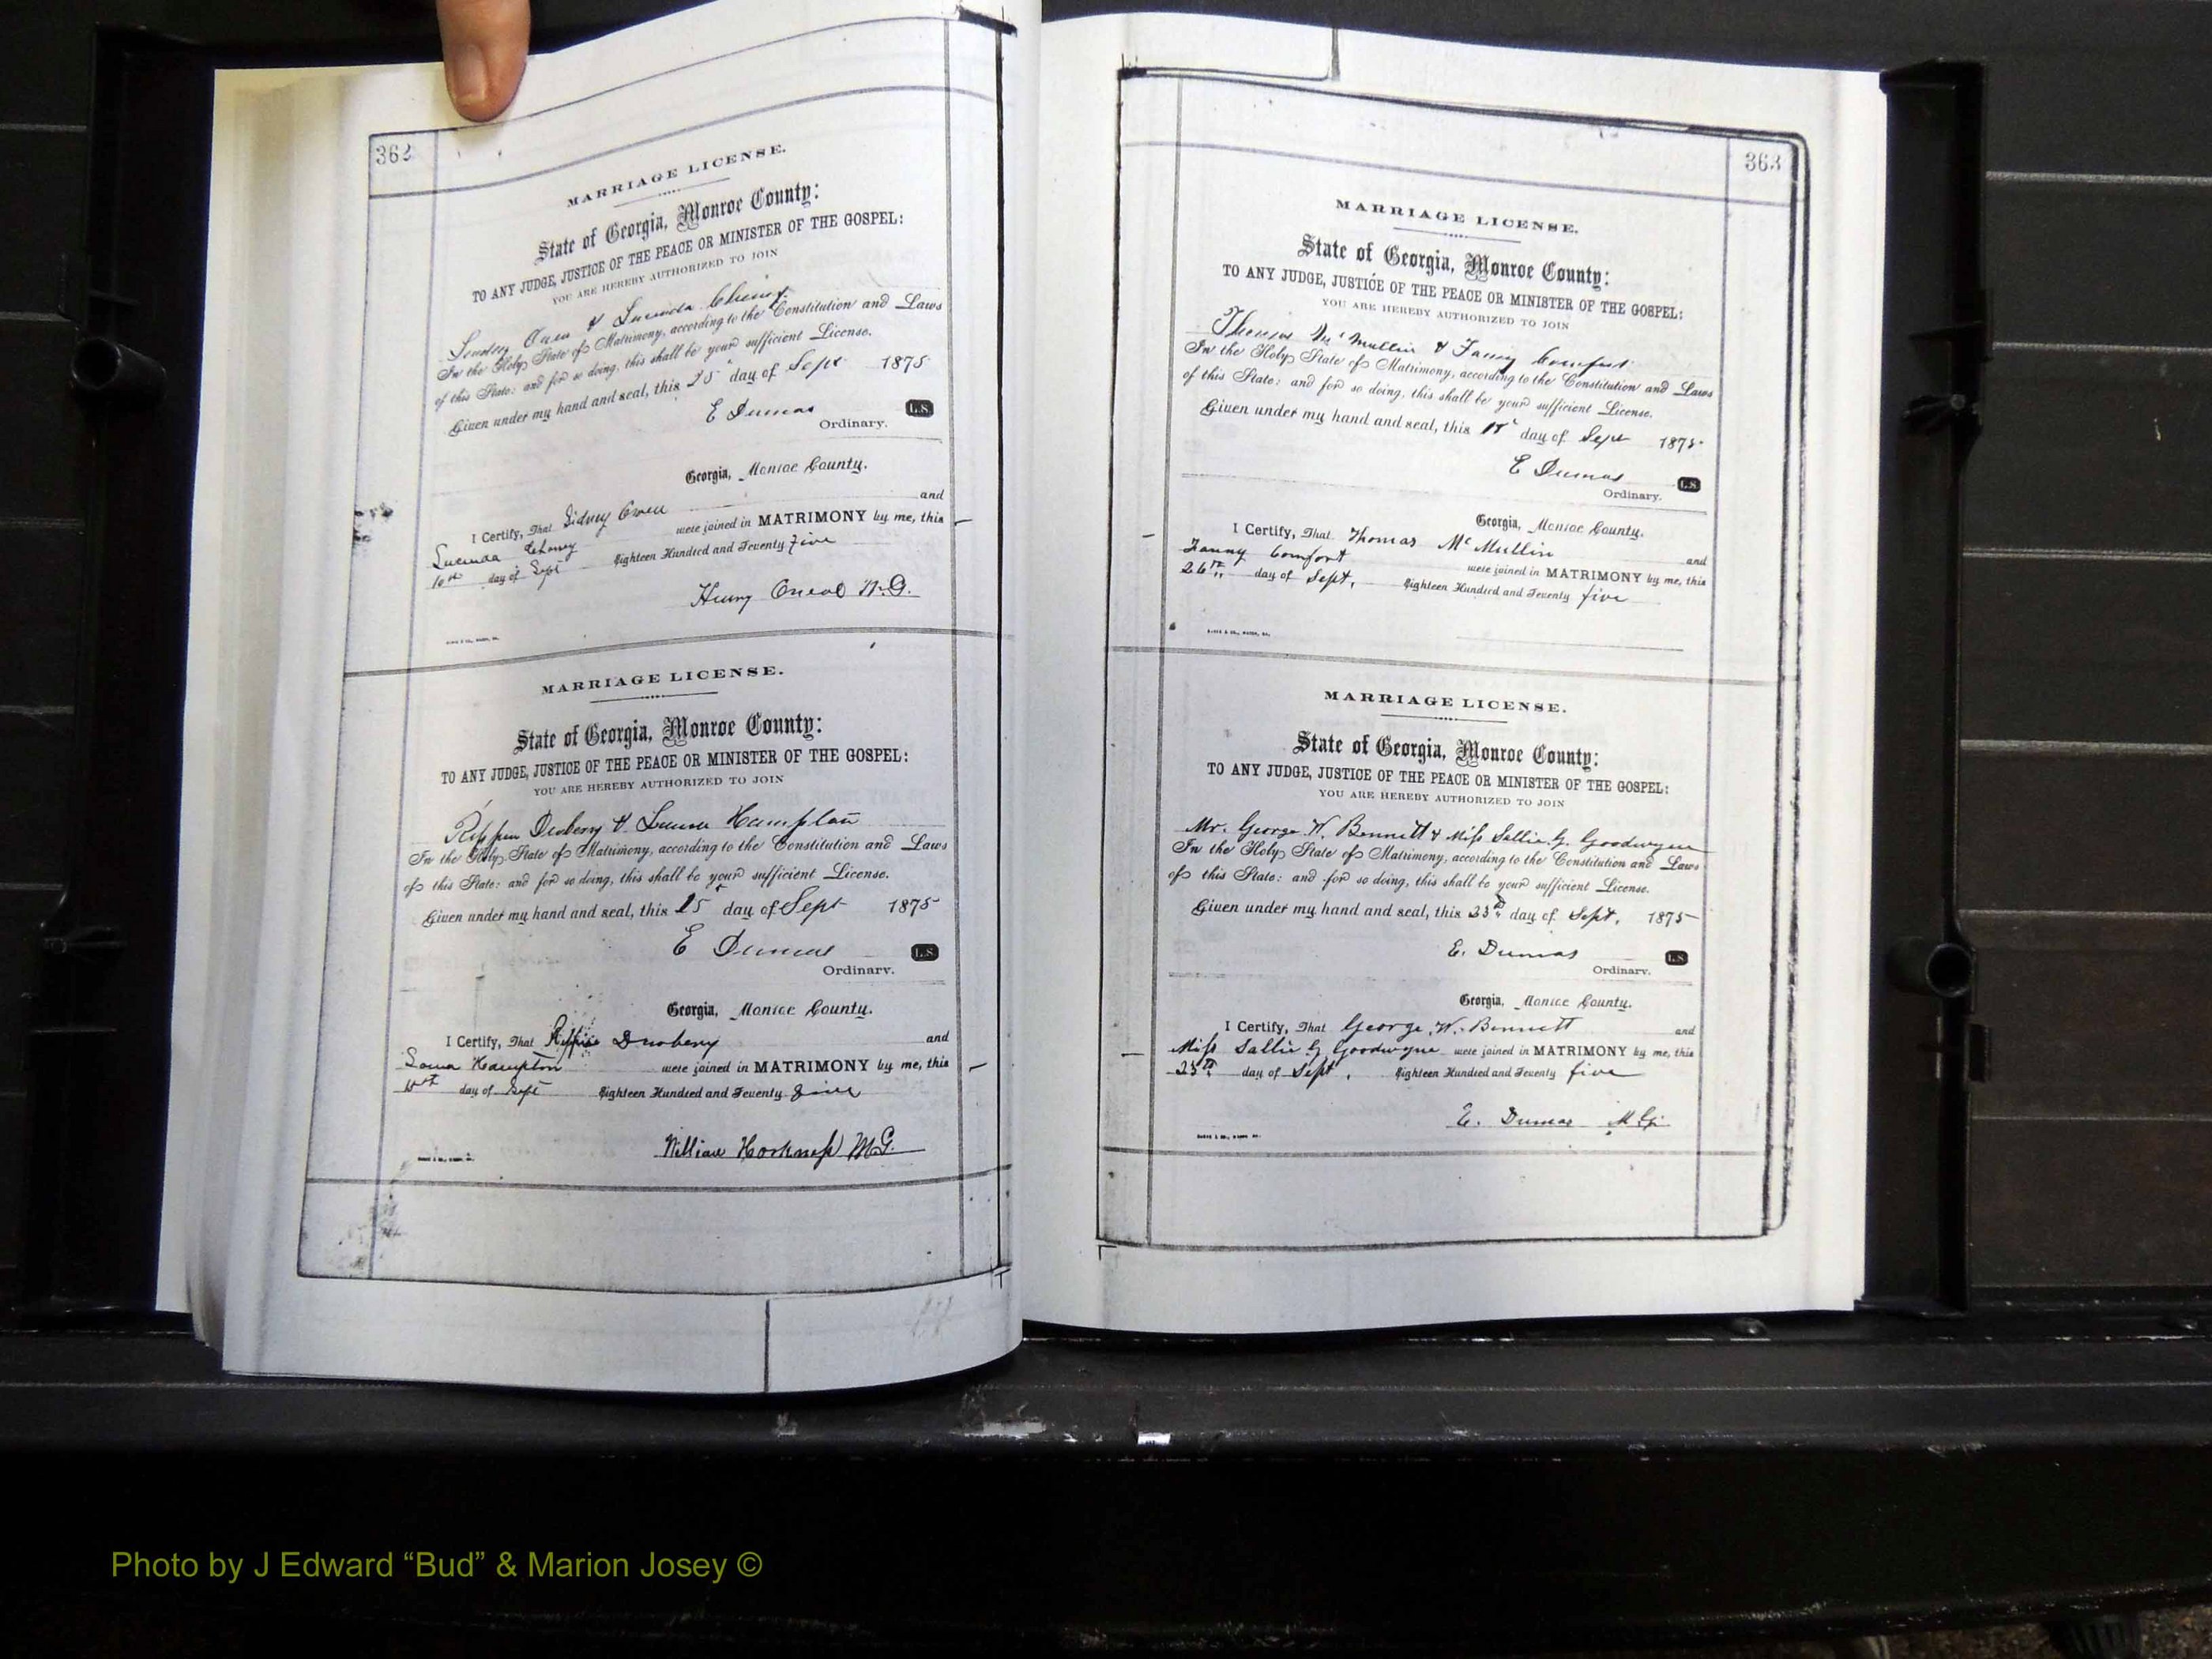 362
MARRIAGE LICENSE.
State of Georgia, Monroe County:
TO ANY JUDGE, JUSTICE OF THE PEACE OR MINISTER OF THE GOSPEL:
YOU ARE HEREBY AUTHORIZED TO JOIN
Owen & Lucinda
In the Holy State of Matrimony, according to the Constitution and Laws
of this State: and for so doing, this shall be your sufficient License.
Given under my hand and seal, this day of Sept 1875
E Dumas L.S.
Ordinary.
Georgia, Monroe County.
I Certify, That Sidney Owen and
Lucinda were joined in MATRIMONY by me, this
day of Sept Eighteen Hundred and Seventy five
Henry Oneal M.G.
MARRIAGE LICENSE.
State of Georgia, Monroe County:
TO ANY JUDGE, JUSTICE OF THE PEACE OR MINISTER OF THE GOSPEL:
YOU ARE HEREBY AUTHORIZED TO JOIN
& Hampton
In the Holy State of Matrimony, according to the Constitution and Laws
of this State: and for so doing, this shall be your sufficient License.
Given under my hand and seal, this day of Sept 1875
E Dumas L.S.
Ordinary.
Georgia, Monroe County.
I Certify, That and
Hampton were joined in MATRIMONY by me, this
day of Sept Eighteen Hundred and Seventy five
William M.G.
363
MARRIAGE LICENSE.
State of Georgia, Monroe County:
TO ANY JUDGE, JUSTICE OF THE PEACE OR MINISTER OF THE GOSPEL:
YOU ARE HEREBY AUTHORIZED TO JOIN
Thomas McMullin & Fanny Comfort
In the Holy State of Matrimony, according to the Constitution and Laws
of this State: and for so doing, this shall be your sufficient License.
Given under my hand and seal, this day of Sept 1875
E Dumas L.S.
Ordinary.
Georgia, Monroe County.
I Certify, That Thomas McMullin and
Fanny Comfort were joined in MATRIMONY by me, this
26th day of Sept. Eighteen Hundred and Seventy five
MARRIAGE LICENSE.
State of Georgia, Monroe County:
TO ANY JUDGE, JUSTICE OF THE PEACE OR MINISTER OF THE GOSPEL:
YOU ARE HEREBY AUTHORIZED TO JOIN
Mr. George W. Bennett & Miss Sallie G. Goodwyne
In the Holy State of Matrimony, according to the Constitution and Laws
of this State: and for so doing, this shall be your sufficient License.
Given under my hand and seal, this 23d day of Sept. 1875
E. Dumas L.S.
Ordinary.
Georgia, Monroe County.
I Certify, That George W. Bennett and
Miss Sallie G. Goodwyne were joined in MATRIMONY by me, this
23d day of Sept. Eighteen Hundred and Seventy five
E. Dumas M.G.
Photo by J Edward “Bud” & Marion Josey ©